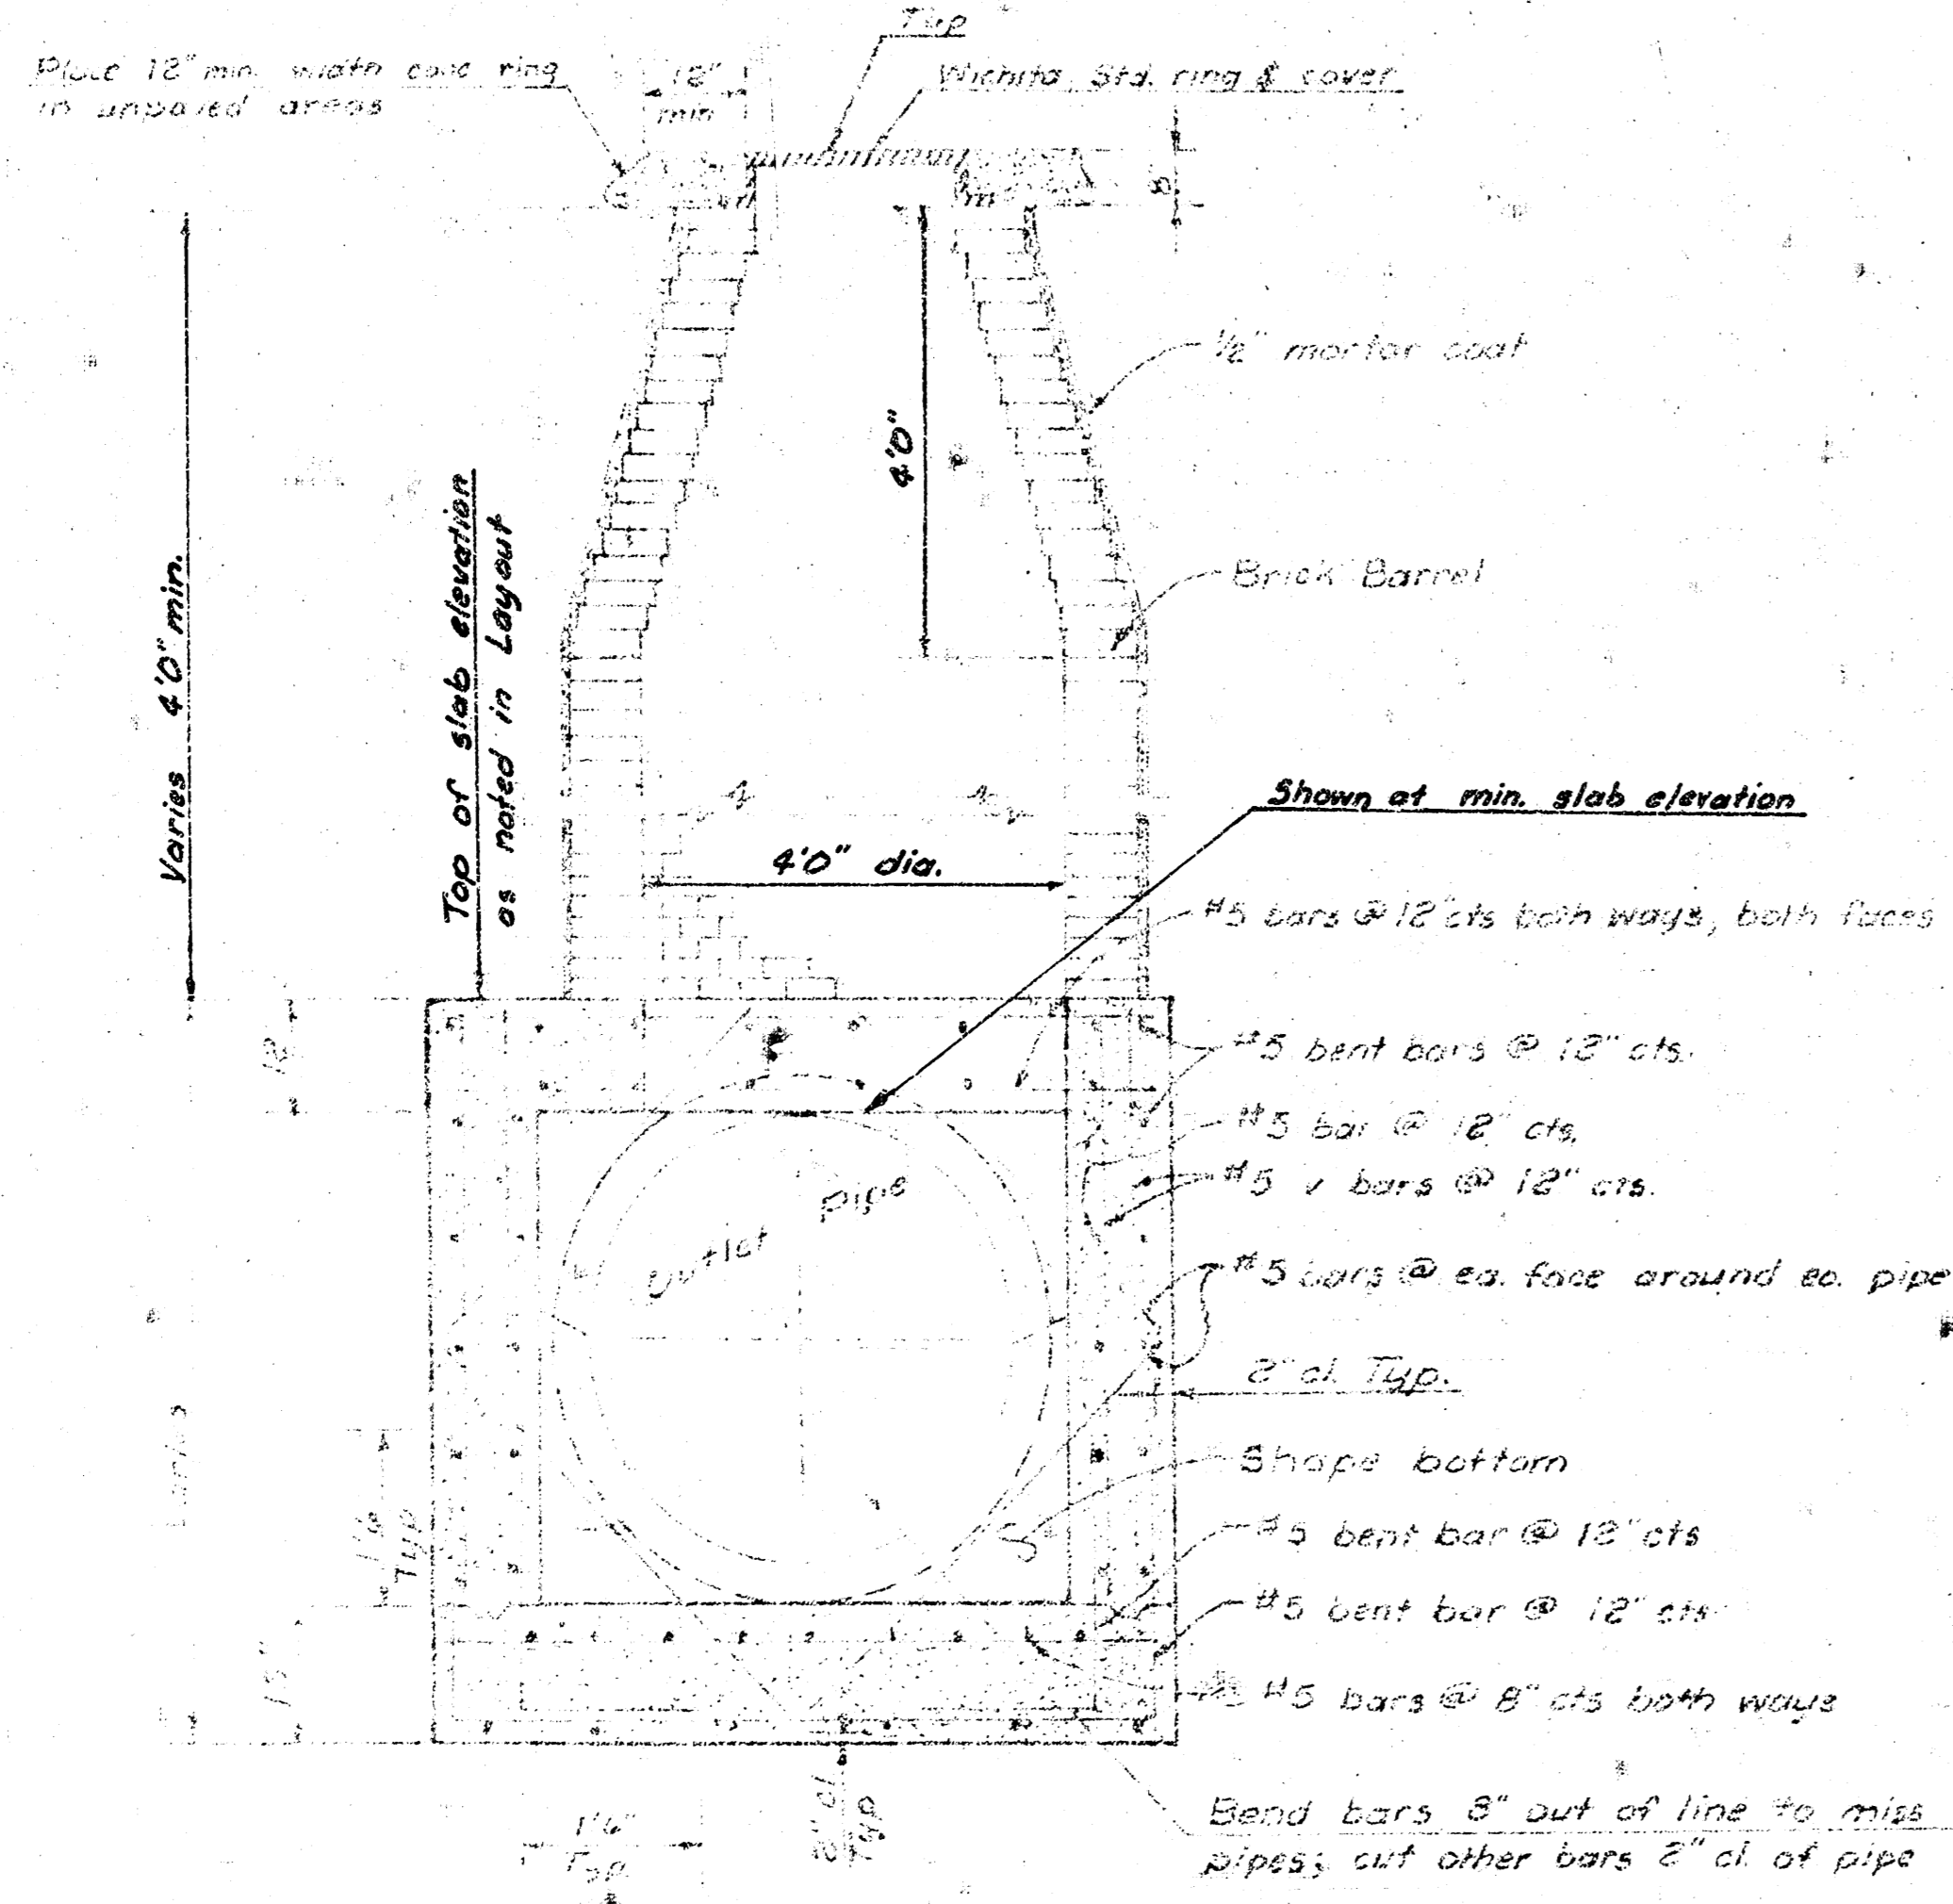 Top
Place 12" min. width conc ring
in unpaved areas
12"
min
Wichita Std. ring & cover
8"
1/2" mortar coat
4'0"
Brick Barrel
Varies 4'0" min.
Top of slab elevation
as noted in Layout
Shown at min. slab elevation
4'0" dia.
#5 bars @ 12" cts both ways, both faces
12"
#5 bent bars @ 12" cts.
#5 bar @ 12" cts.
#5 v bars @ 12" cts.
Outlet Pipe
#5 bars @ ea. face around ea. pipe
2" cl. Typ.
Varies
Shape bottom
1'6"
Typ
#5 bent bar @ 12" cts
#5 bent bar @ 12" cts
15"
#5 bars @ 8" cts both ways
2" cl.
Typ
1'6"
Typ.
Bend bars 8" out of line to miss
pipes; cut other bars 2" cl. of pipe